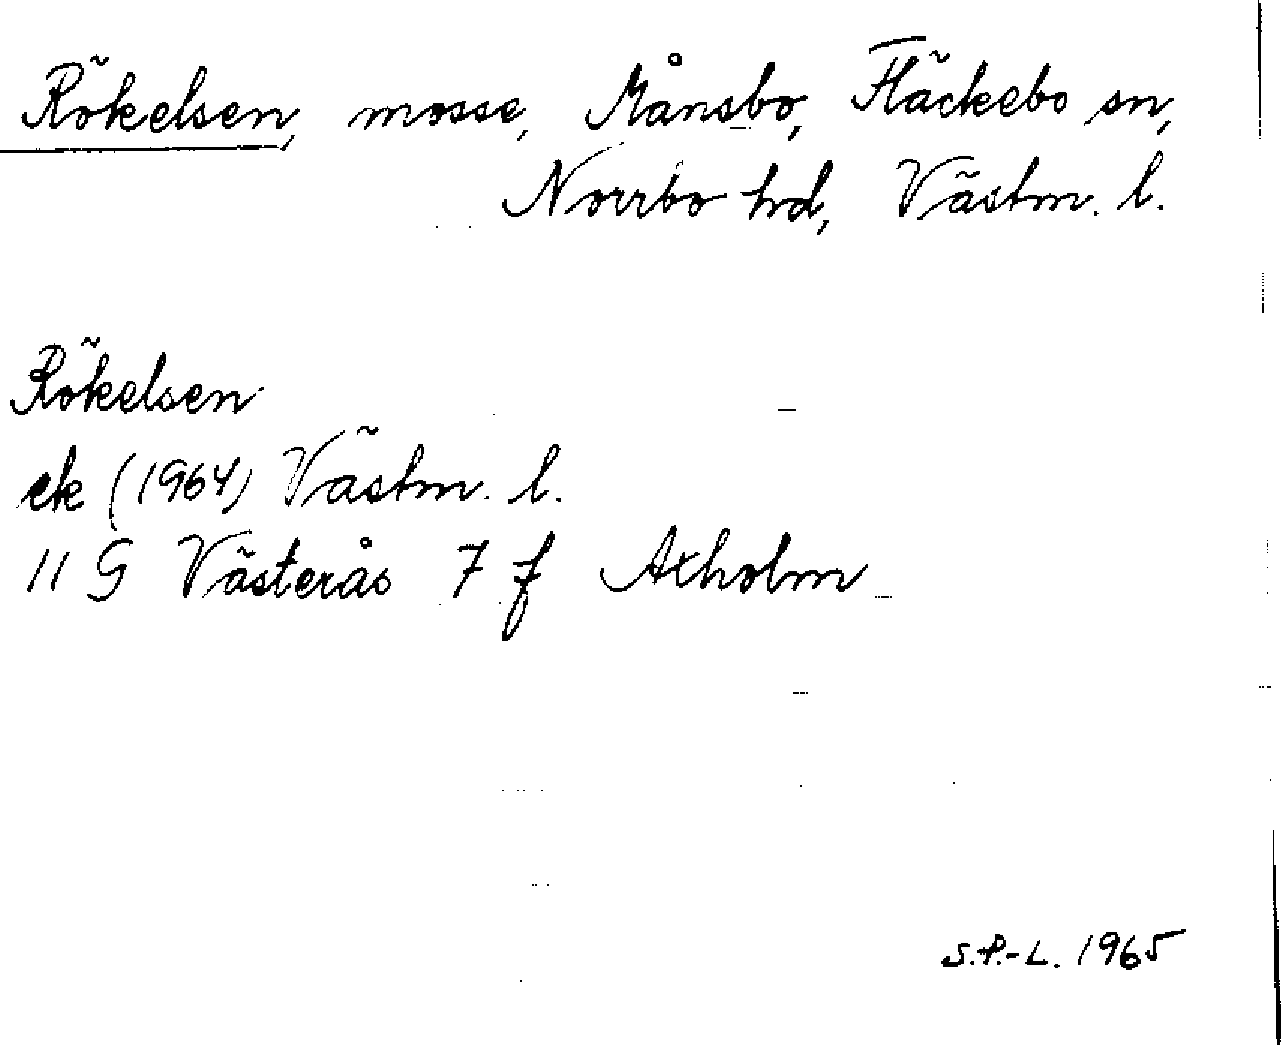 Rökelsen, mosse, Månsbo, Fläckebo sn,
Norrbo hd, Västm. l.
Rökelsen
ek (1964) Västm. l.
11 G Västerås 7 f Axholm
S.P.-L. 1965